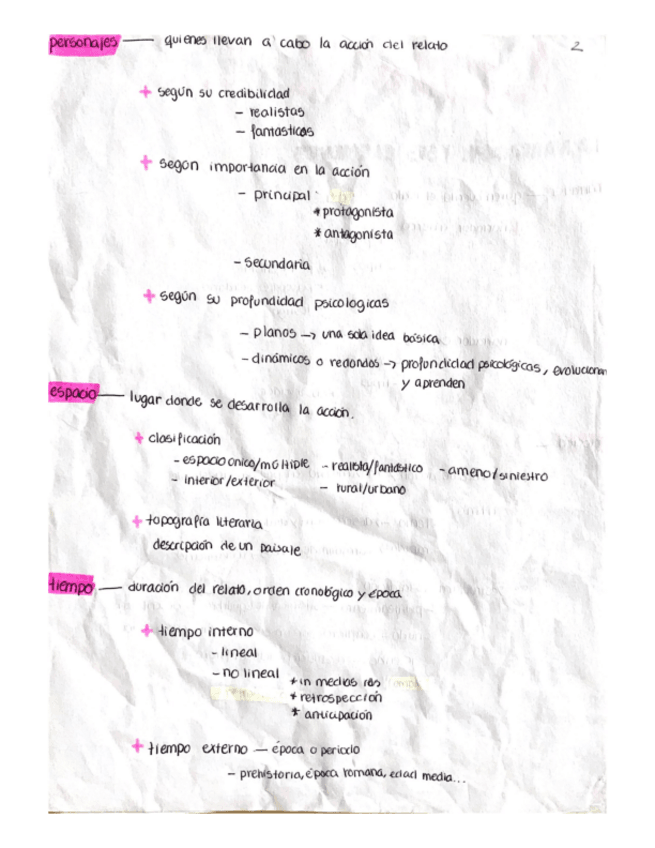 personajes — quienes llevan a cabo la acción del relato 2
+ según su credibilidad
- realistas
- fantasticos
+ segon importancia en la acción
- principal
* protagonista
* antagonista
- secundaria
+ según su profundidad psicologicas
- planos → una sola idea básica
- dinámicos o redondos → profundidad psicológicas, evolucionan
y aprenden
espacio — lugar donde se desarrolla la acción.
+ clasificación
- espacio único/múltiple - realista/fantástico - ameno/siniestro
- interior/exterior - rural/urbano
+ topografía literaria
descripción de un paisaje
tiempo — duración del relato, orden cronológico y época
+ tiempo interno
- lineal
- no lineal * in medias res
* retrospección
* anticipación
+ tiempo externo — época o periodo
- prehistoria, época romana, edad media...